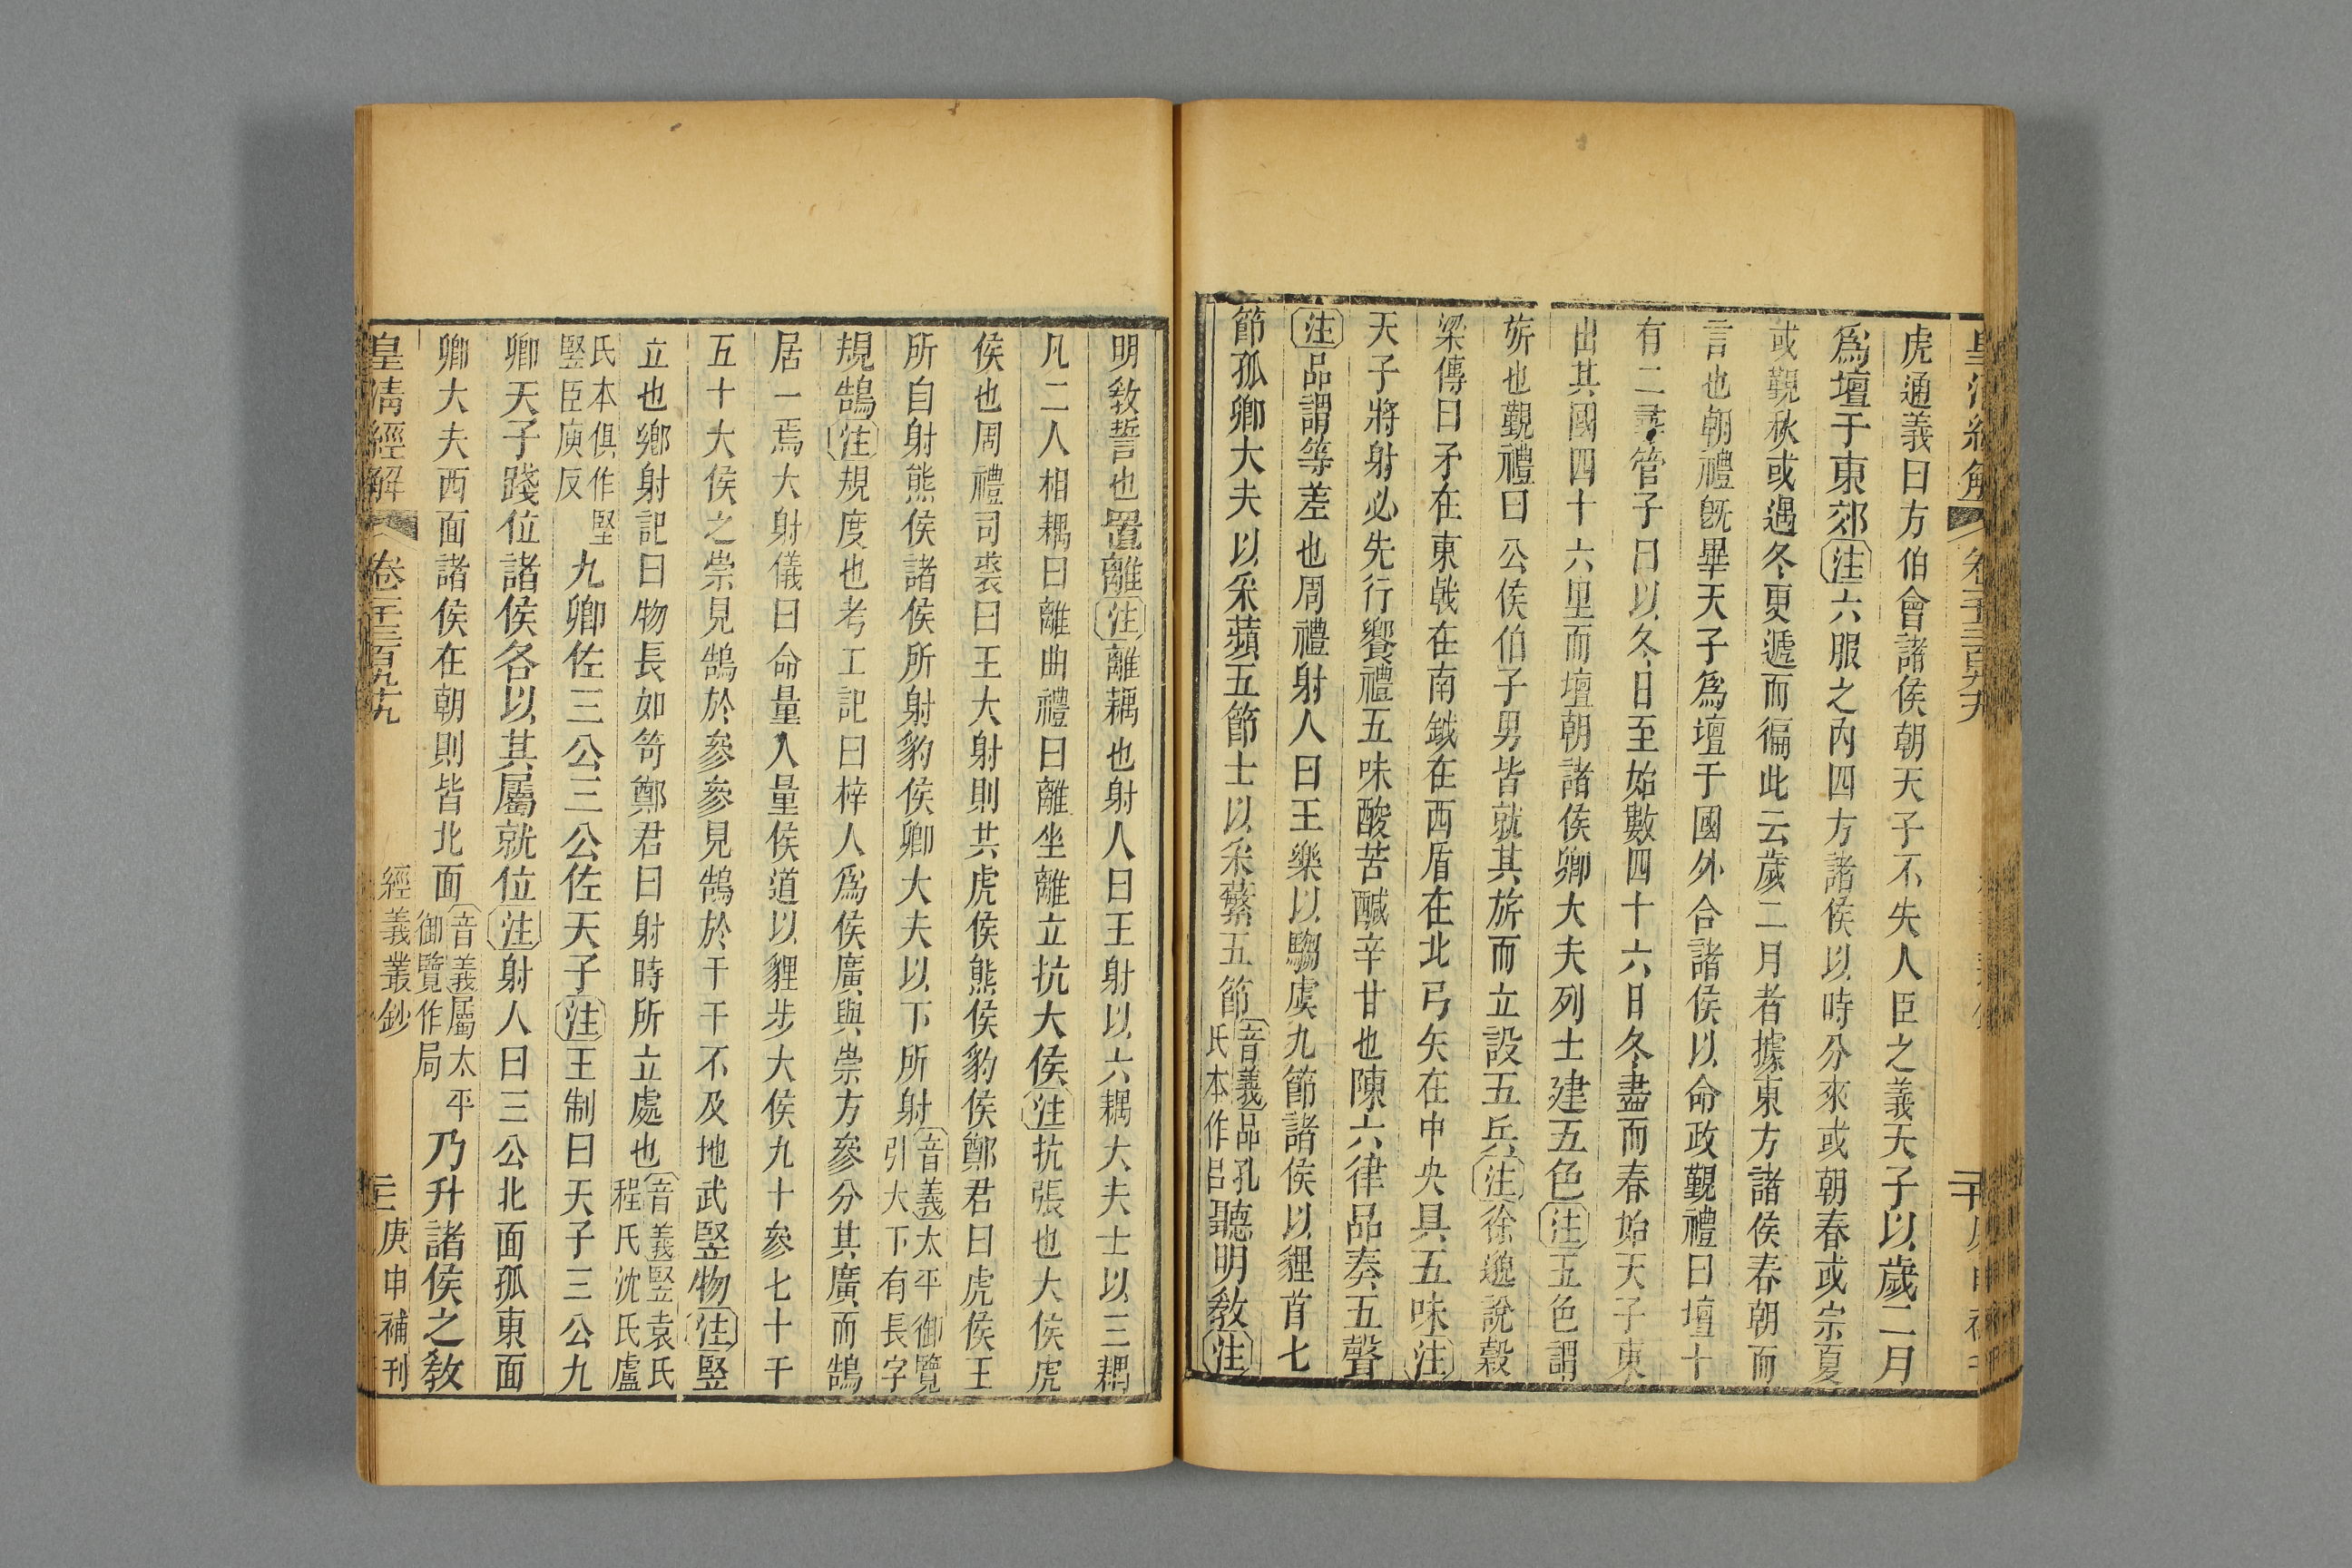 皇清經解 卷一千三百九十九
虎通義曰方伯會諸侯朝天子不失人臣之義天子以歲二月
爲壇于東郊注六服之內四方諸侯以時分來或朝春或宗夏
或覲秋或遇冬更遞而徧此云歲二月者據東方諸侯春朝而
言也朝禮旣畢天子爲壇于國外合諸侯以命政覲禮曰壇十
有二尋管子曰以冬日至始數四十六日冬盡而春始天子東
出其國四十六里而壇朝諸侯卿大夫列士建五色注五色謂
旂也覲禮曰公侯伯子男皆就其旂而立設五兵注徐邈說穀
梁傳曰矛在東戟在南鉞在西盾在北弓矢在中央具五味注
天子將射必先行饗禮五味酸苦醎辛甘也陳六律品奏五聲
注品謂等差也周禮射人曰王樂以騶虞九節諸侯以貍首七
節孤卿大夫以采蘋五節士以采蘩五節音義品孔氏本作呂聽明敎注
明敎誓也置離注離耦也射人曰王射以六耦大夫士以三耦
凡二人相耦曰離曲禮曰離坐離立抗大侯注抗張也大侯虎
侯也周禮司裘曰王大射則共虎侯熊侯豹侯鄭君曰虎侯王
所自射熊侯諸侯所射豹侯卿大夫以下所射音義太平御覽引大下有長字
規鵠注規度也考工記曰梓人爲侯廣與崇方參分其廣而鵠
居一焉大射儀曰命量人量侯道以貍步大侯九十參七十干
五十大侯之崇見鵠於參參見鵠於干干不及地武竪物注竪
立也鄉射記曰物長如笴鄭君曰射時所立處也音義竪袁氏程氏沈氏盧
氏本俱作堅竪臣庾反九卿佐三公三公佐天子注王制曰天子三公九
卿天子踐位諸侯各以其屬就位注射人曰三公北面孤東面
卿大夫西面諸侯在朝則皆北面音義屬太平御覽作局乃升諸侯之敎
皇清經解 卷一千三百九十九 經義叢鈔 庚申補刊